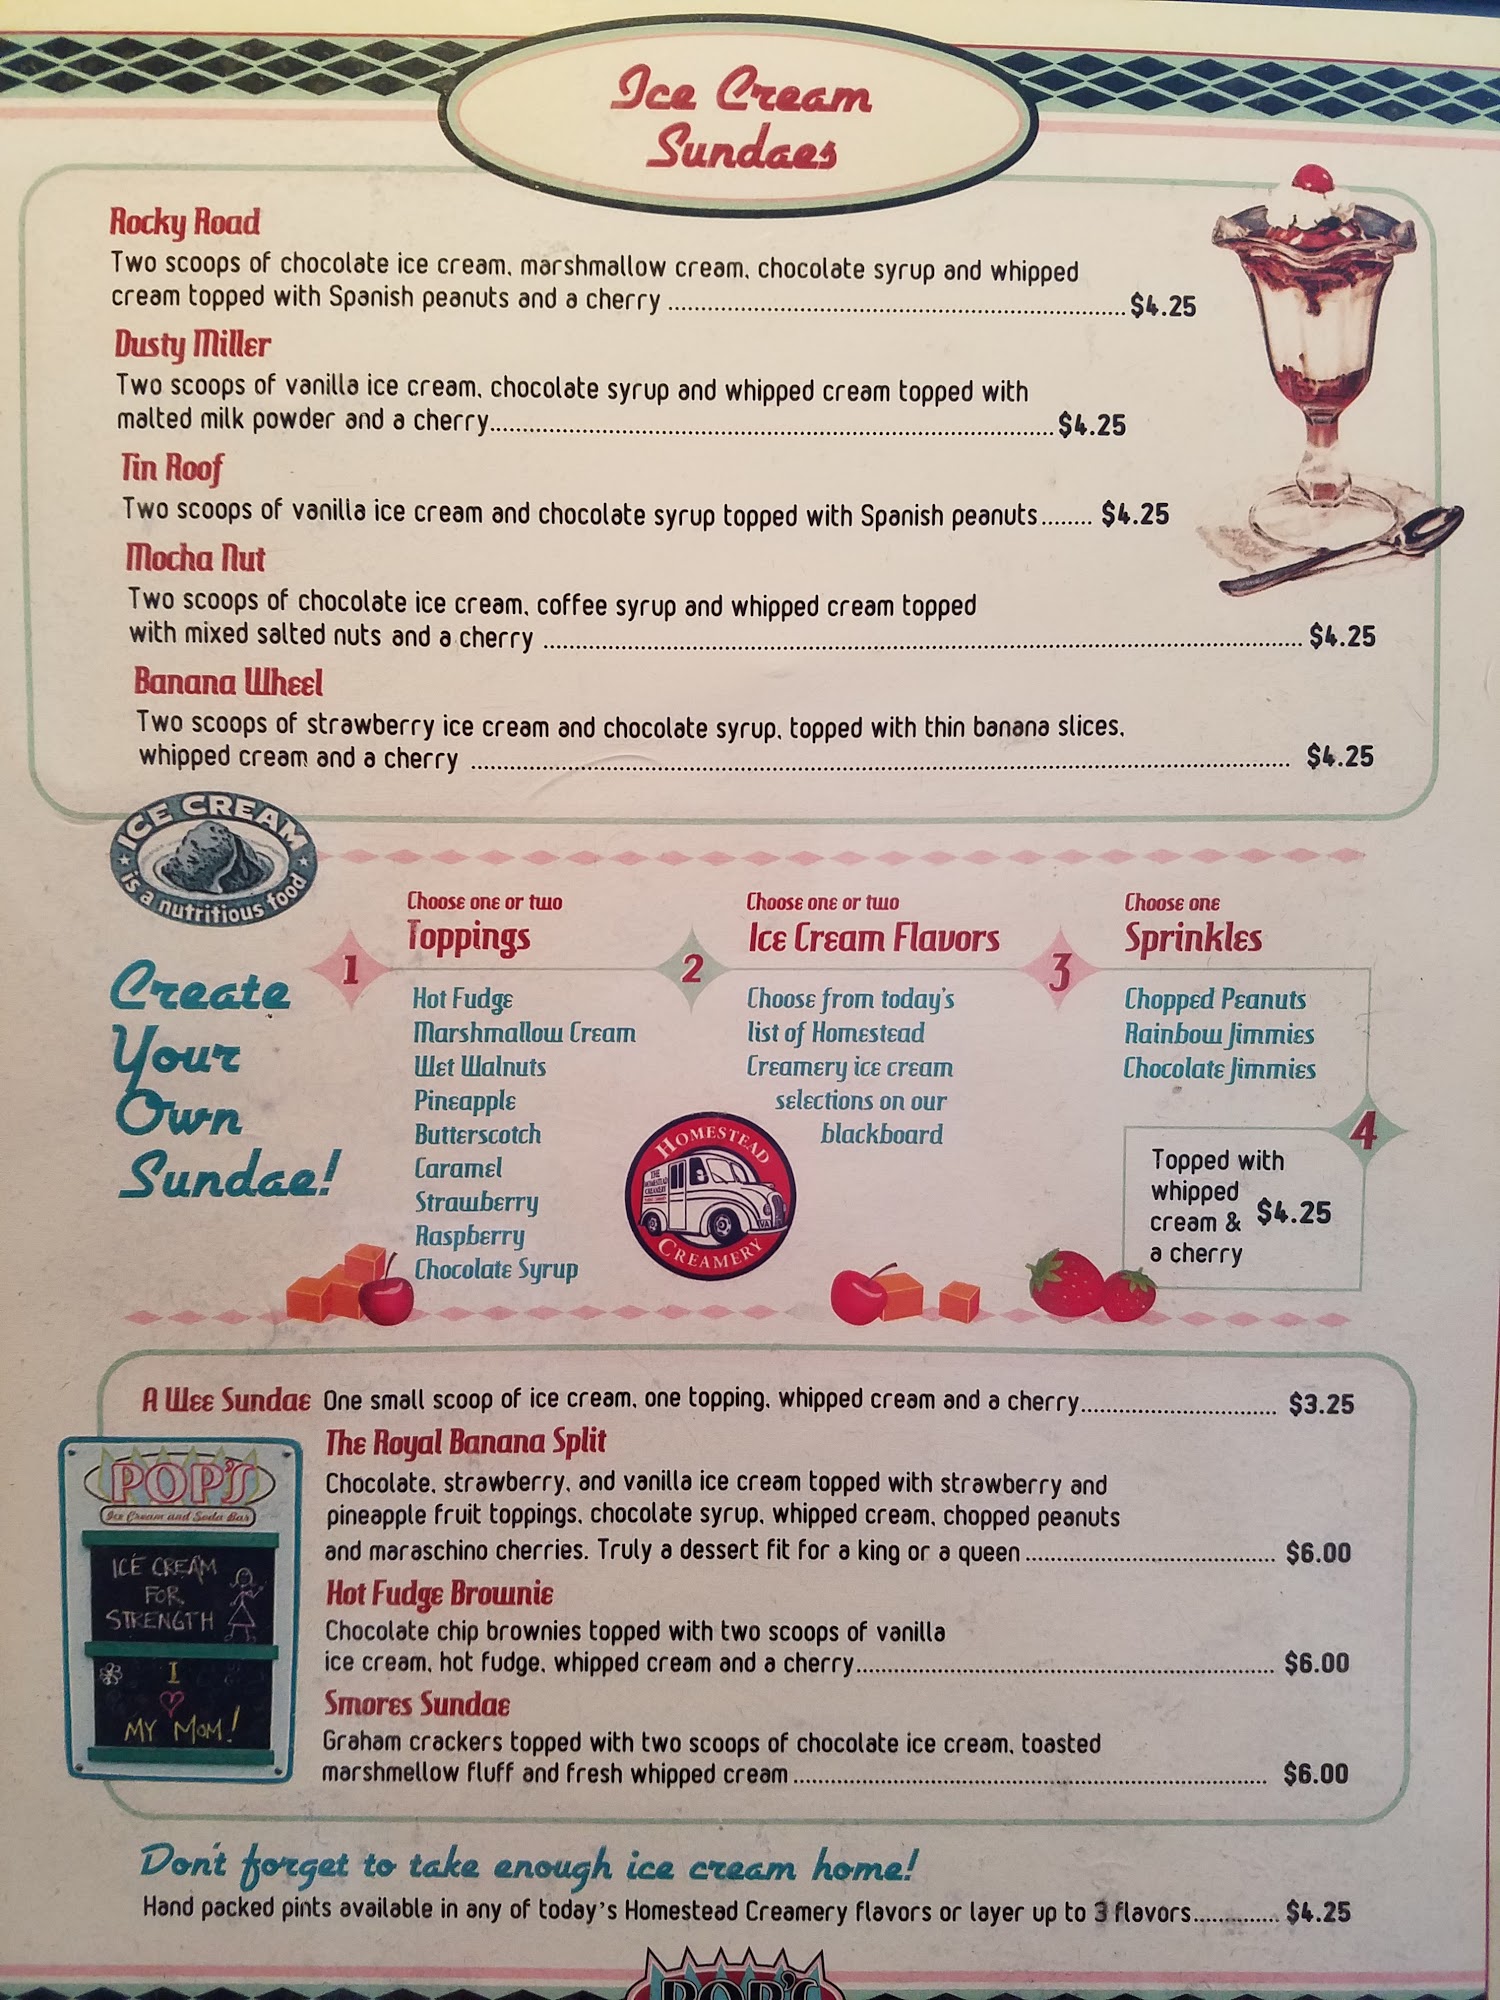 Ice Cream
Sundaes
Rocky Road
Two scoops of chocolate ice cream, marshmallow cream, chocolate syrup and whipped
cream topped with Spanish peanuts and a cherry ........ $4.25
Dusty Miller
Two scoops of vanilla ice cream, chocolate syrup and whipped cream topped with
malted milk powder and a cherry........ $4.25
Tin Roof
Two scoops of vanilla ice cream and chocolate syrup topped with Spanish peanuts........ $4.25
Mocha Nut
Two scoops of chocolate ice cream, coffee syrup and whipped cream topped
with mixed salted nuts and a cherry ........ $4.25
Banana Wheel
Two scoops of strawberry ice cream and chocolate syrup, topped with thin banana slices,
whipped cream and a cherry ........ $4.25
ICE CREAM
is a nutritious food
Create
Your
Own
Sundae!
1
Choose one or two
Toppings
Hot Fudge
Marshmallow Cream
Wet Walnuts
Pineapple
Butterscotch
Caramel
Strawberry
Raspberry
Chocolate Syrup
2
Choose one or two
Ice Cream Flavors
Choose from today's
list of Homestead
Creamery ice cream
selections on our
blackboard
HOMESTEAD
CREAMERY
3
Choose one
Sprinkles
Chopped Peanuts
Rainbow Jimmies
Chocolate Jimmies
4
Topped with
whipped
cream & $4.25
a cherry
A Wee Sundae One small scoop of ice cream, one topping, whipped cream and a cherry........ $3.25
The Royal Banana Split
Chocolate, strawberry, and vanilla ice cream topped with strawberry and
pineapple fruit toppings, chocolate syrup, whipped cream, chopped peanuts
and maraschino cherries. Truly a dessert fit for a king or a queen ........ $6.00
Hot Fudge Brownie
Chocolate chip brownies topped with two scoops of vanilla
ice cream, hot fudge, whipped cream and a cherry........ $6.00
Smores Sundae
Graham crackers topped with two scoops of chocolate ice cream, toasted
marshmellow fluff and fresh whipped cream ........ $6.00
POP'S
Ice Cream and Soda Bar
ICE CREAM
FOR
STRENGTH
I
MY MOM!
Don't forget to take enough ice cream home!
Hand packed pints available in any of today's Homestead Creamery flavors or layer up to 3 flavors........ $4.25
POP'S